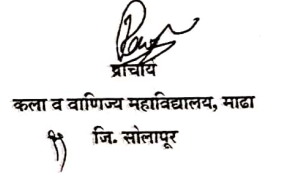 प्राचार्य
कला व वाणिज्य महाविद्यालय, माढा
जि. सोलापूर